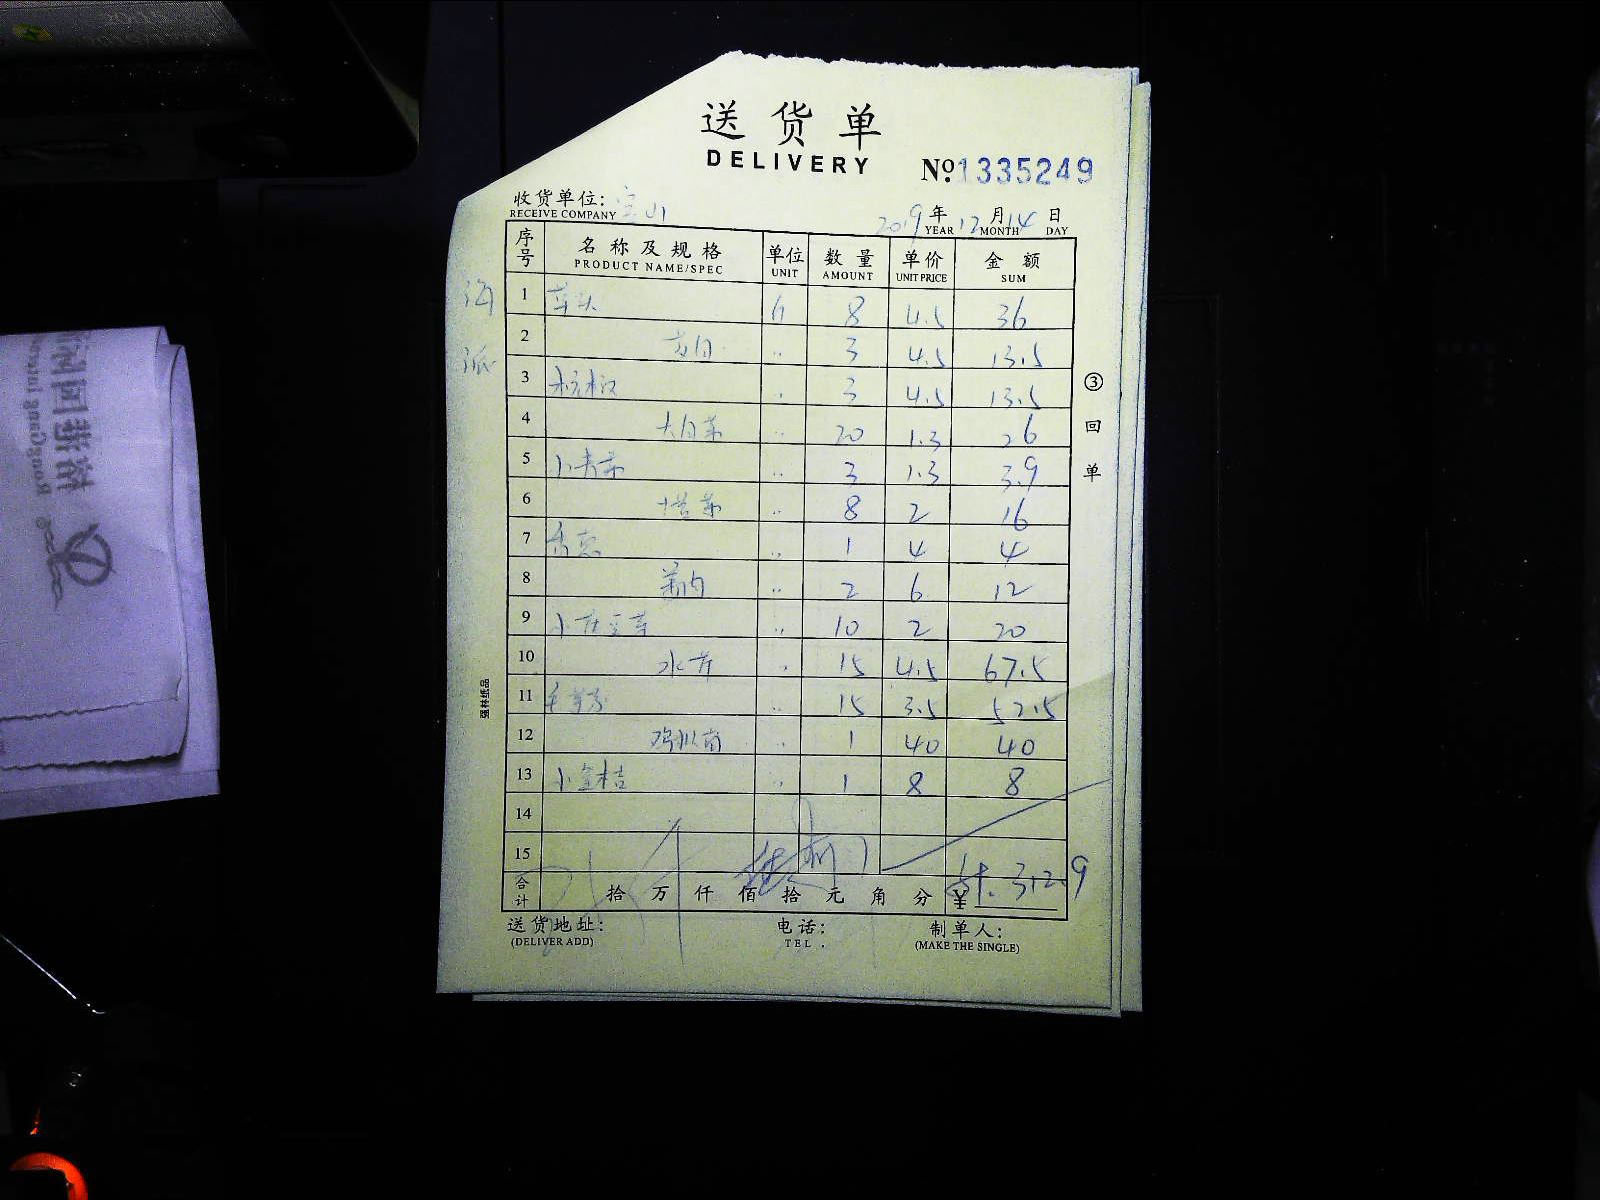 送货单
DELIVERY
№1335249
收货单位: 宝山
RECEIVE COMPANY
2019年12月14日
YEAR MONTH DAY
序号 名称及规格 单位 数量 单价 金额
PRODUCT NAME/SPEC UNIT AMOUNT UNIT PRICE SUM
1 8 4.5 36
2 3 4.5 13.5
3 杭椒 3 4.5 13.5
4 大白菜 20 1.3 26
5 小青菜 3 1.3 3.9
6 塔菜 8 2 16
7 香葱 1 4 4
8 2 6 12
9 小黄豆芽 10 2 20
10 水芹 15 4.5 67.5
11 15 3.5 52.5
12 鸡枞菌 1 40 40
13 小金桔 1 8 8
14
15
合计 拾 万 仟 佰 拾 元 角 分 ¥ 312.9
送货地址: 电话: 制单人:
(DELIVER ADD) TEL. (MAKE THE SINGLE)
③回单
强林纸品
海派